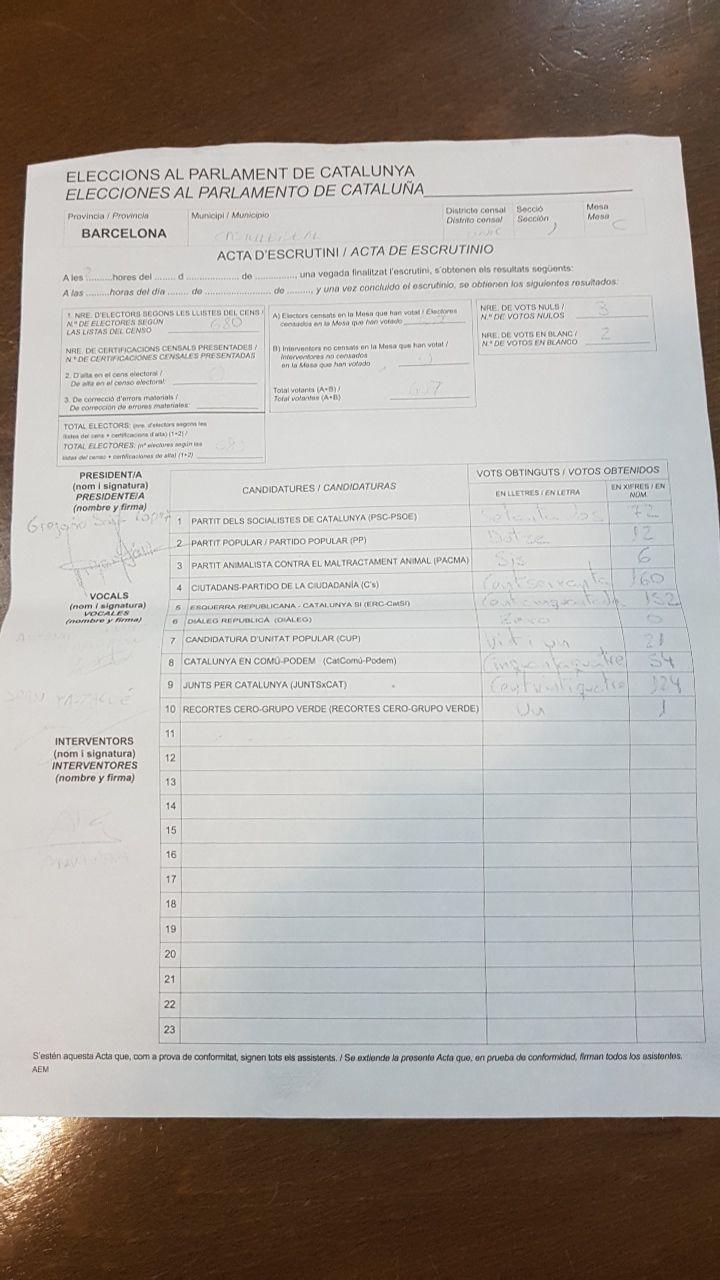 ELECCIONS AL PARLAMENT DE CATALUNYA
ELECCIONES AL PARLAMENTO DE CATALUÑA
Provincia / Provincia
BARCELONA
Municipi / Municipio
Districte censal
Distrito censal
Secció
Sección
Mesa
Mesa C
ACTA D'ESCRUTINI / ACTA DE ESCRUTINIO
A les .........hores del ........ d ..................... de ..............., una vegada finalitzat l'escrutini, s'obtenen els resultats següents:
A las .........horas del día ........ de ........................ de ........, y una vez concluido el escrutinio, se obtienen los siguientes resultados:
1. NRE. D'ELECTORS SEGONS LES LLISTES DEL CENS /
N.º DE ELECTORES SEGÚN 680
LAS LISTAS DEL CENSO
NRE. DE CERTIFICACIONS CENSALS PRESENTADES /
N.º DE CERTIFICACIONES CENSALES PRESENTADAS
2. D'alta en el cens electoral /
De alta en el censo electoral:
3. De correcció d'errors materials /
De corrección de errores materiales:
TOTAL ELECTORS: (nre. d'electors segons les
llistes del cens + certificacions d'alta) (1+2) /
TOTAL ELECTORES: (nº electores según las
listas del censo + certificaciones de alta) (1+2)
A) Electors censats en la Mesa que han votat / Electores
censados en la Mesa que han votado
B) Interventors no censats en la Mesa que han votat /
Interventores no censados
en la Mesa que han votado
Total votants (A+B) /
Total votantes (A+B) 607
NRE. DE VOTS NULS / 3
N.º DE VOTOS NULOS
NRE. DE VOTS EN BLANC / 2
N.º DE VOTOS EN BLANCO
PRESIDENT/A
(nom i signatura)
PRESIDENTE/A
(nombre y firma)
Gregorio
VOCALS
(nom i signatura)
VOCALES
(nombre y firma)
JOAN
INTERVENTORS
(nom i signatura)
INTERVENTORES
(nombre y firma)
CANDIDATURES / CANDIDATURAS
VOTS OBTINGUTS / VOTOS OBTENIDOS
EN LLETRES / EN LETRA
EN XIFRES / EN
NÚM.
1 PARTIT DELS SOCIALISTES DE CATALUNYA (PSC-PSOE) Setanta dos 72
2 PARTIT POPULAR / PARTIDO POPULAR (PP) Dotze 12
3 PARTIT ANIMALISTA CONTRA EL MALTRACTAMENT ANIMAL (PACMA) Sis 6
4 CIUTADANS-PARTIDO DE LA CIUDADANÍA (C's) 160
5 ESQUERRA REPUBLICANA - CATALUNYA SI (ERC-CatSí) 152
6 DIÀLEG REPUBLICÀ (DIÀLEG) Zero 0
7 CANDIDATURA D'UNITAT POPULAR (CUP) 21
8 CATALUNYA EN COMÚ-PODEM (CatComú-Podem) Cinquantaquatre 54
9 JUNTS PER CATALUNYA (JUNTSxCAT) 124
10 RECORTES CERO-GRUPO VERDE (RECORTES CERO-GRUPO VERDE) Un 1
11
12
13
14
15
16
17
18
19
20
21
22
23
S'estén aquesta Acta que, com a prova de conformitat, signen tots els assistents. / Se extiende la presente Acta que, en prueba de conformidad, firman todos los asistentes.
AEM